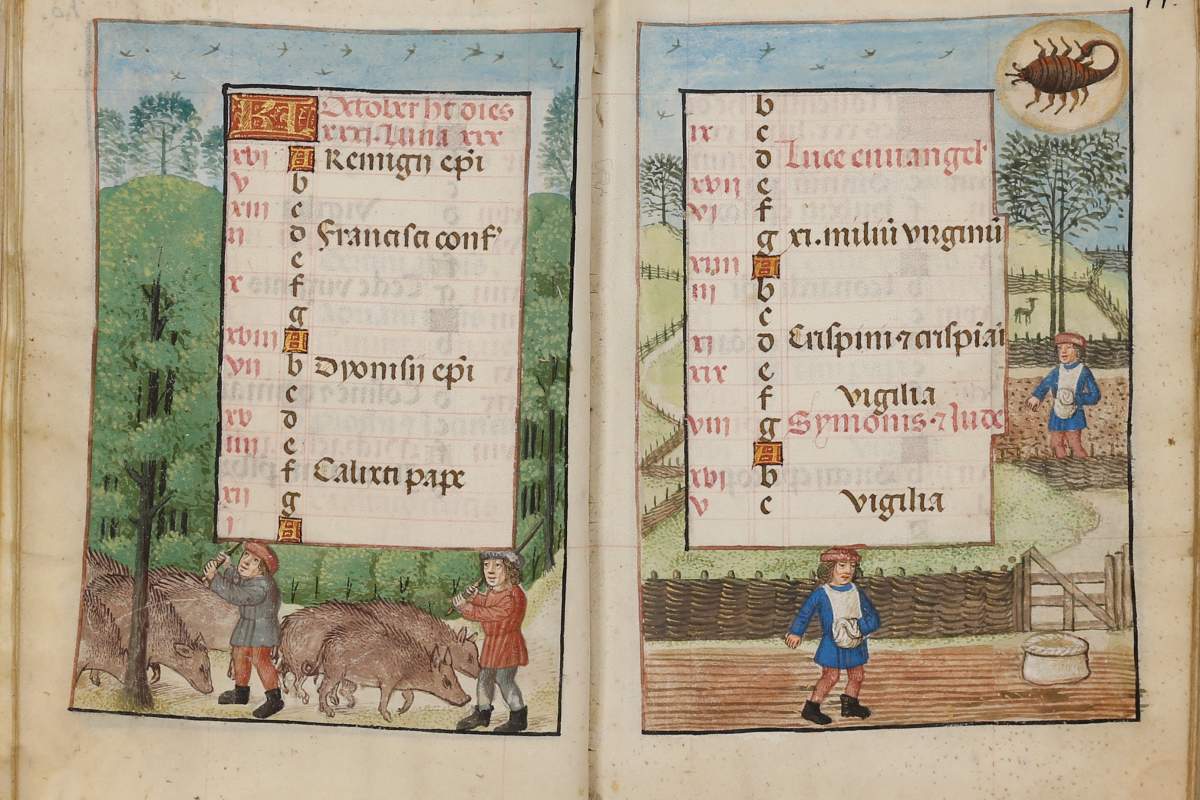 KL October ht dies
xxxi. Luna xxx
xvi A Remigij epi
v b
xiii c
ii d Francisci conf
e
x f
g
xviii A
vii b Dyonisij epi
c
xv d
iiii e
f Calixti pape
xii g
i A
b
ix c
d Luce euuangel
xvii e
vi f
g xi. miliu virginu
xiiii A
iii b
c
xi d Crispini ⁊ crispiai
xix e
f vigilia
viii g Symonis ⁊ Jude
A
xvi b
v c vigilia